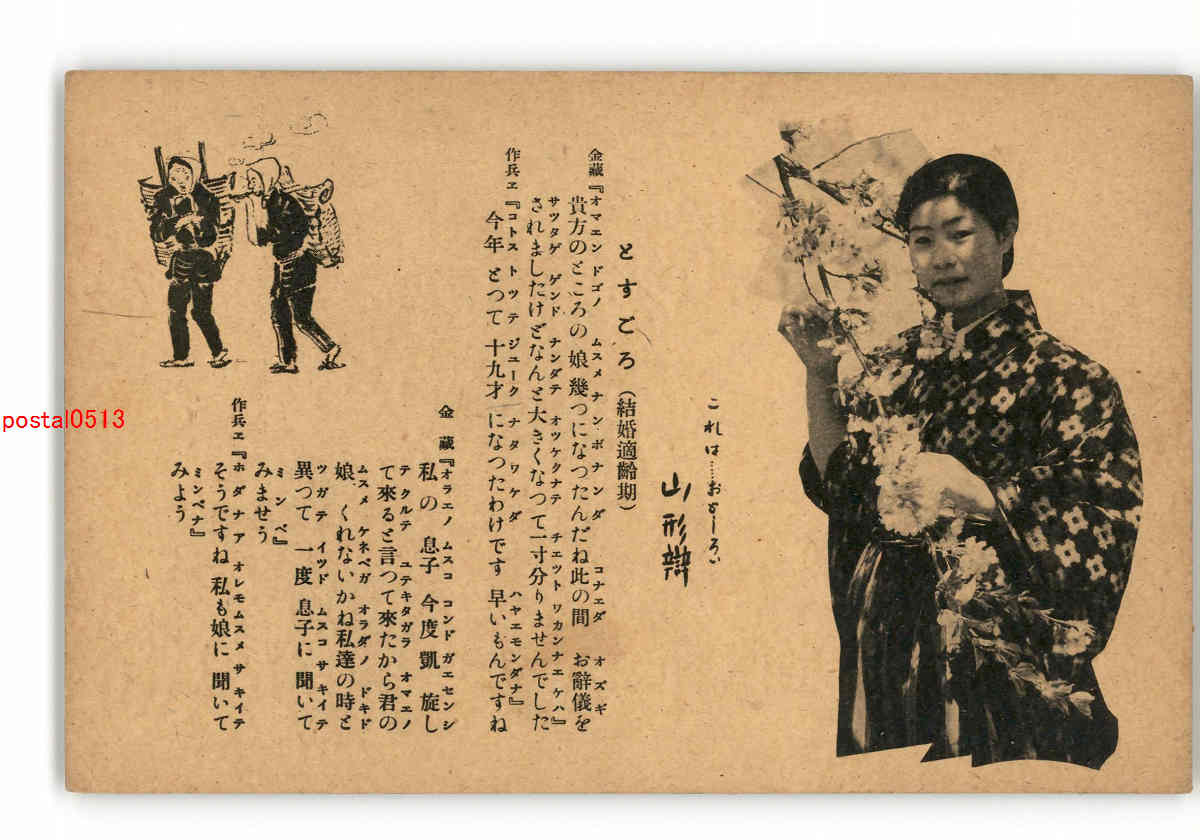 これは……おもしろい
山形辯
とすごろ(結婚適齢期)
金藏『オマエンドゴノ ムスメ ナンボナンダ コナエダ オズギ
貴方のところの 娘 幾つになつたんだね此の間 お辭儀を
サツタゲ ゲンド ナンダテ オツケクナテ チエツト ワカンナエ ケハ』
されましたけどなんと大きくなつて一寸分りませんでした
作兵ヱ『コトス トツテ ジユーク ナタワケダ ハヤエモンダナ』
今年 とつて 十九才 になつたわけです 早いもんですね
金藏『オラエノ ムスコ コンド ガエセンシ
私の 息子 今度 凱旋し
テクルテ ユテキタガラ オマエノ
て來ると言つて來たから君の
ムスメ ケネベガ オラダノ ドキド
娘、くれないかね私達の時と
ツガテ イツド ムスコサ キイテ
異つて 一度 息子に 聞いて
ミンベ』
みませう
作兵ヱ『ホダナア オレモムスメサ キイテ
そうですね 私も娘に 聞いて
ミンベナ』
みよう
postal0513